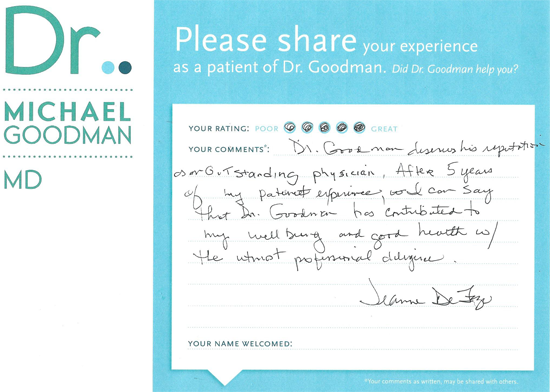 Dr..
MICHAEL
GOODMAN
MD
Please share your experience
as a patient of Dr. Goodman. Did Dr. Goodman help you?
YOUR RATING: POOR GREAT
YOUR COMMENTS*: Dr. Goodman deserves his reputation
as an OUTstanding physician. After 5 years
of my patient experience, can say
that Dr. Goodman has contributed to
my well being and good health w/
the utmost professional diligence.
Jeanne De
YOUR NAME WELCOMED:
*Your comments as written, may be shared with others.